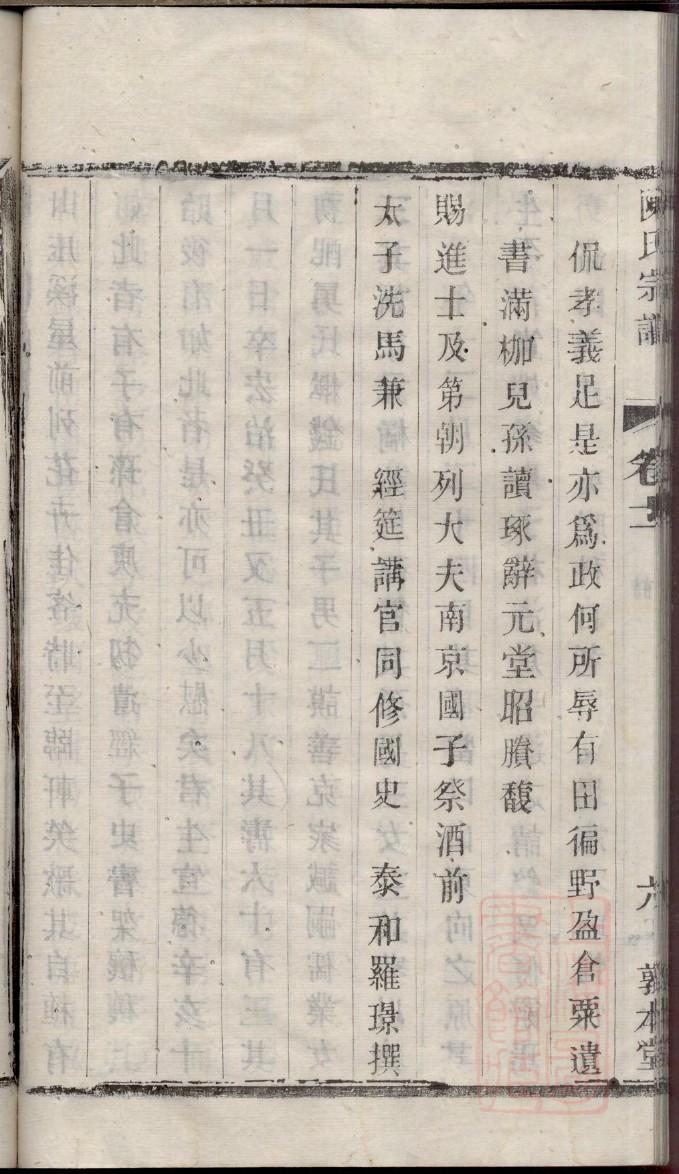 陳氏宗譜 卷十二 六 敦本堂
侃孝義足是亦爲政何所辱有田徧野盈倉粟遺
書滿枷兒孫讀琢辭元堂昭賸馥
賜進士及第朝列大夫南京國子祭酒前
太子洗馬兼 經筵講官同修國史 泰和羅璟撰